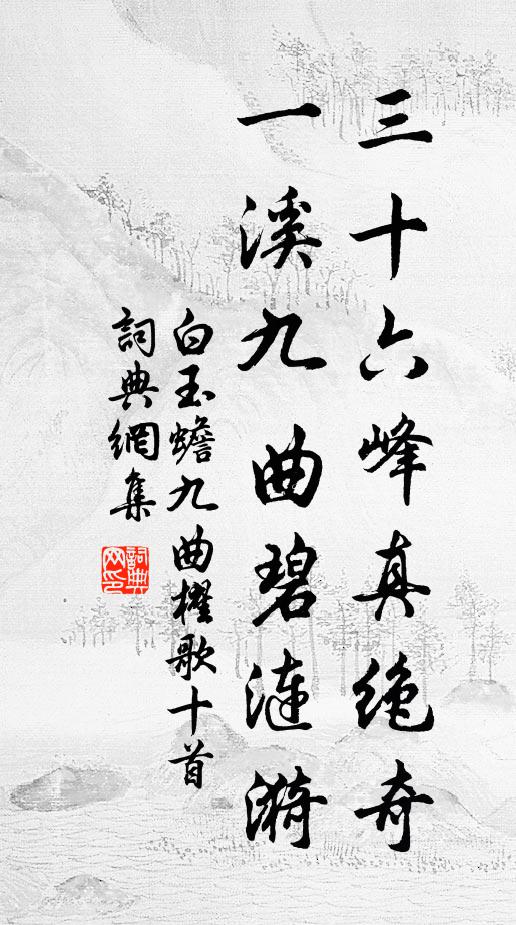 三十六峰真绝奇
一溪九曲碧涟漪
白玉蟾九曲櫂歌十首
詞典網集
詞典網印